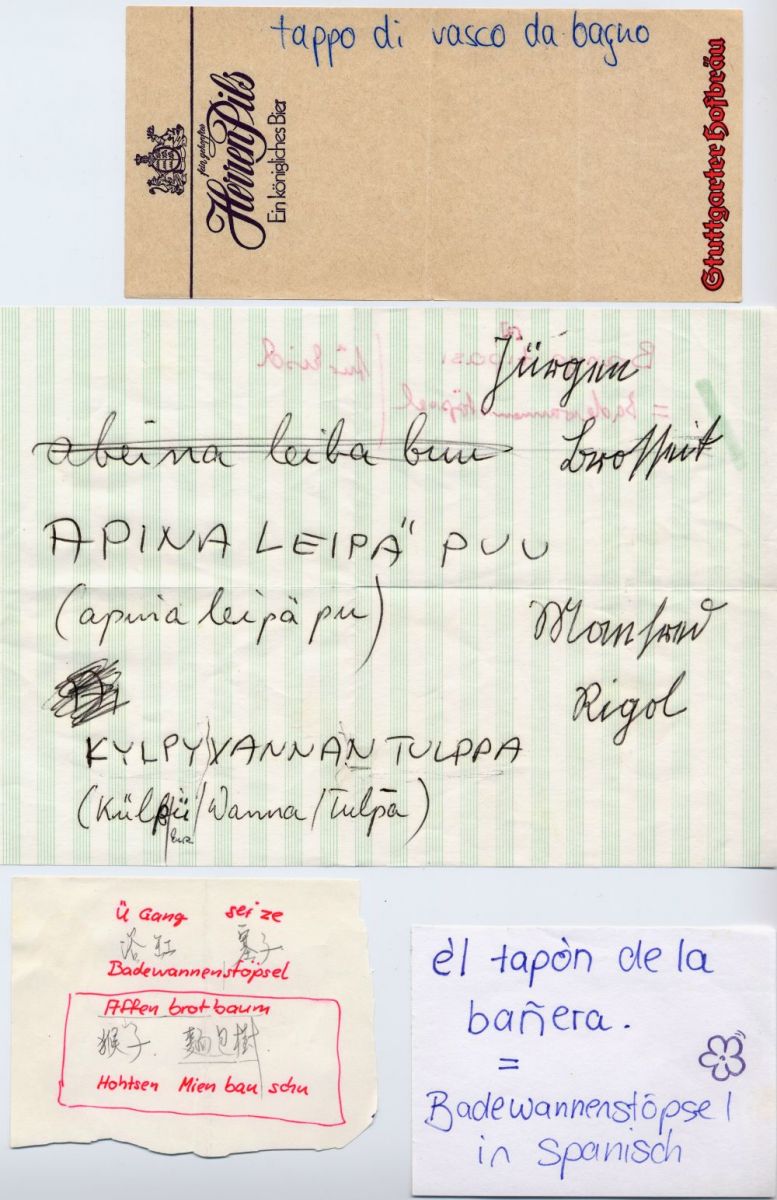 tappo di vasco da bagno
fein gehopftes
Herren Pils
Ein königliches Bier
Stuttgarter Hofbräu
Jürgen
abeina leiba buu
APINA LEIPÄ PUU
(apina leipä pu)
Manfred
Rigol
KYLPY/VANNAN TULPPA
(Külpü/Wanna/Tulpa)
kurz
= Badewannenstöpsel
Ü Gang seize
浴缸 塞子
Badewannenstöpsel
Affen brotbaum
猴子 麵包樹
Hohtsen Mien bau schu
èl tapòn de la
bañera.
=
Badewannenstöpsel
in Spanisch